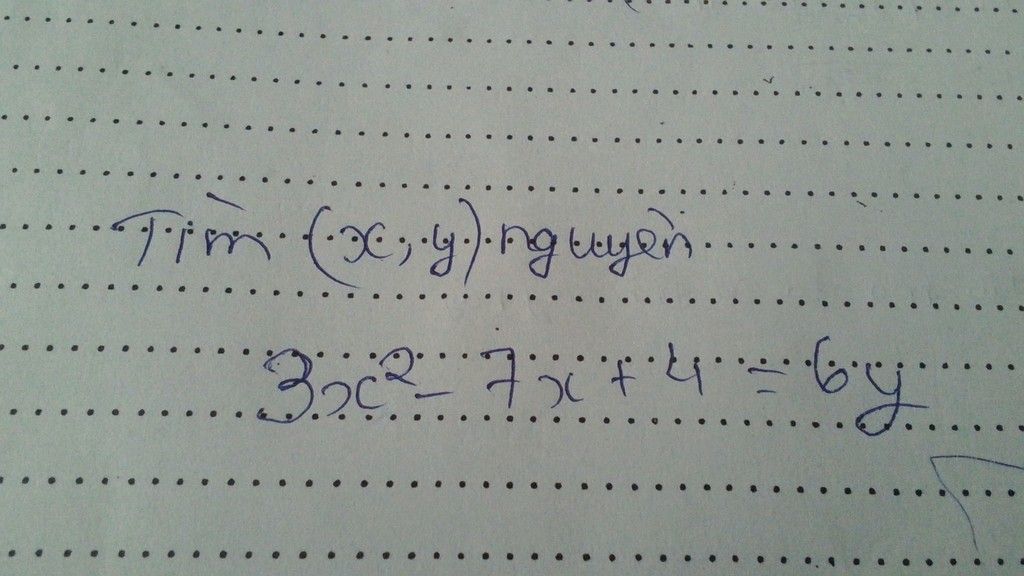 Tìm (x, y) nguyên
3x² - 7x + 4 = 6y